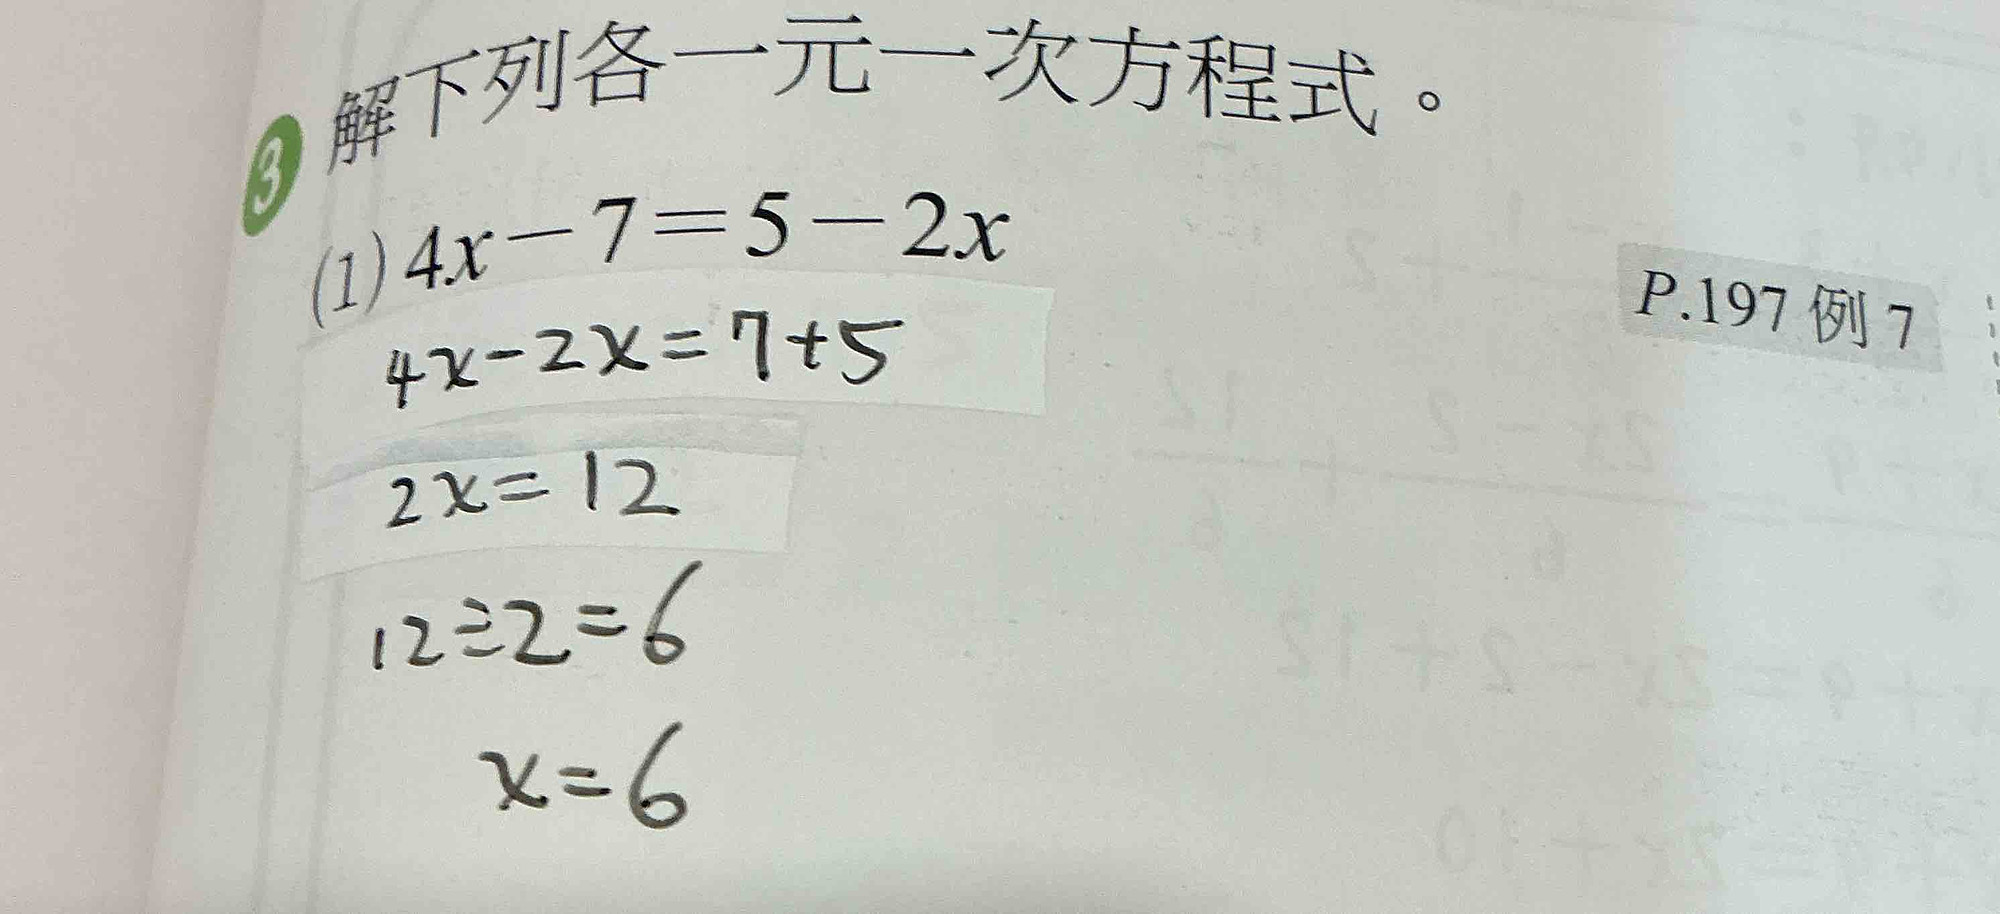 3 解下列各一元一次方程式。
(1) 4x－7＝5－2x
P.197 例 7
4x-2x=7+5
2x=12
12÷2=6
x=6